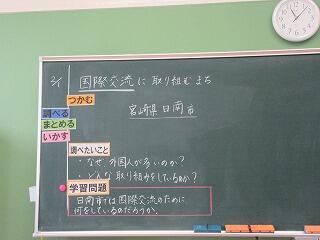 2/1 国際交流に取り組むまち
つかむ
宮崎県日南市
調べる
まとめる
いかす
調べたいこと
・なぜ外国人が多いのか?
・どんな取り組みをしているのか?
学習問題
日南市では国際交流のために
何をしているのだろうか。